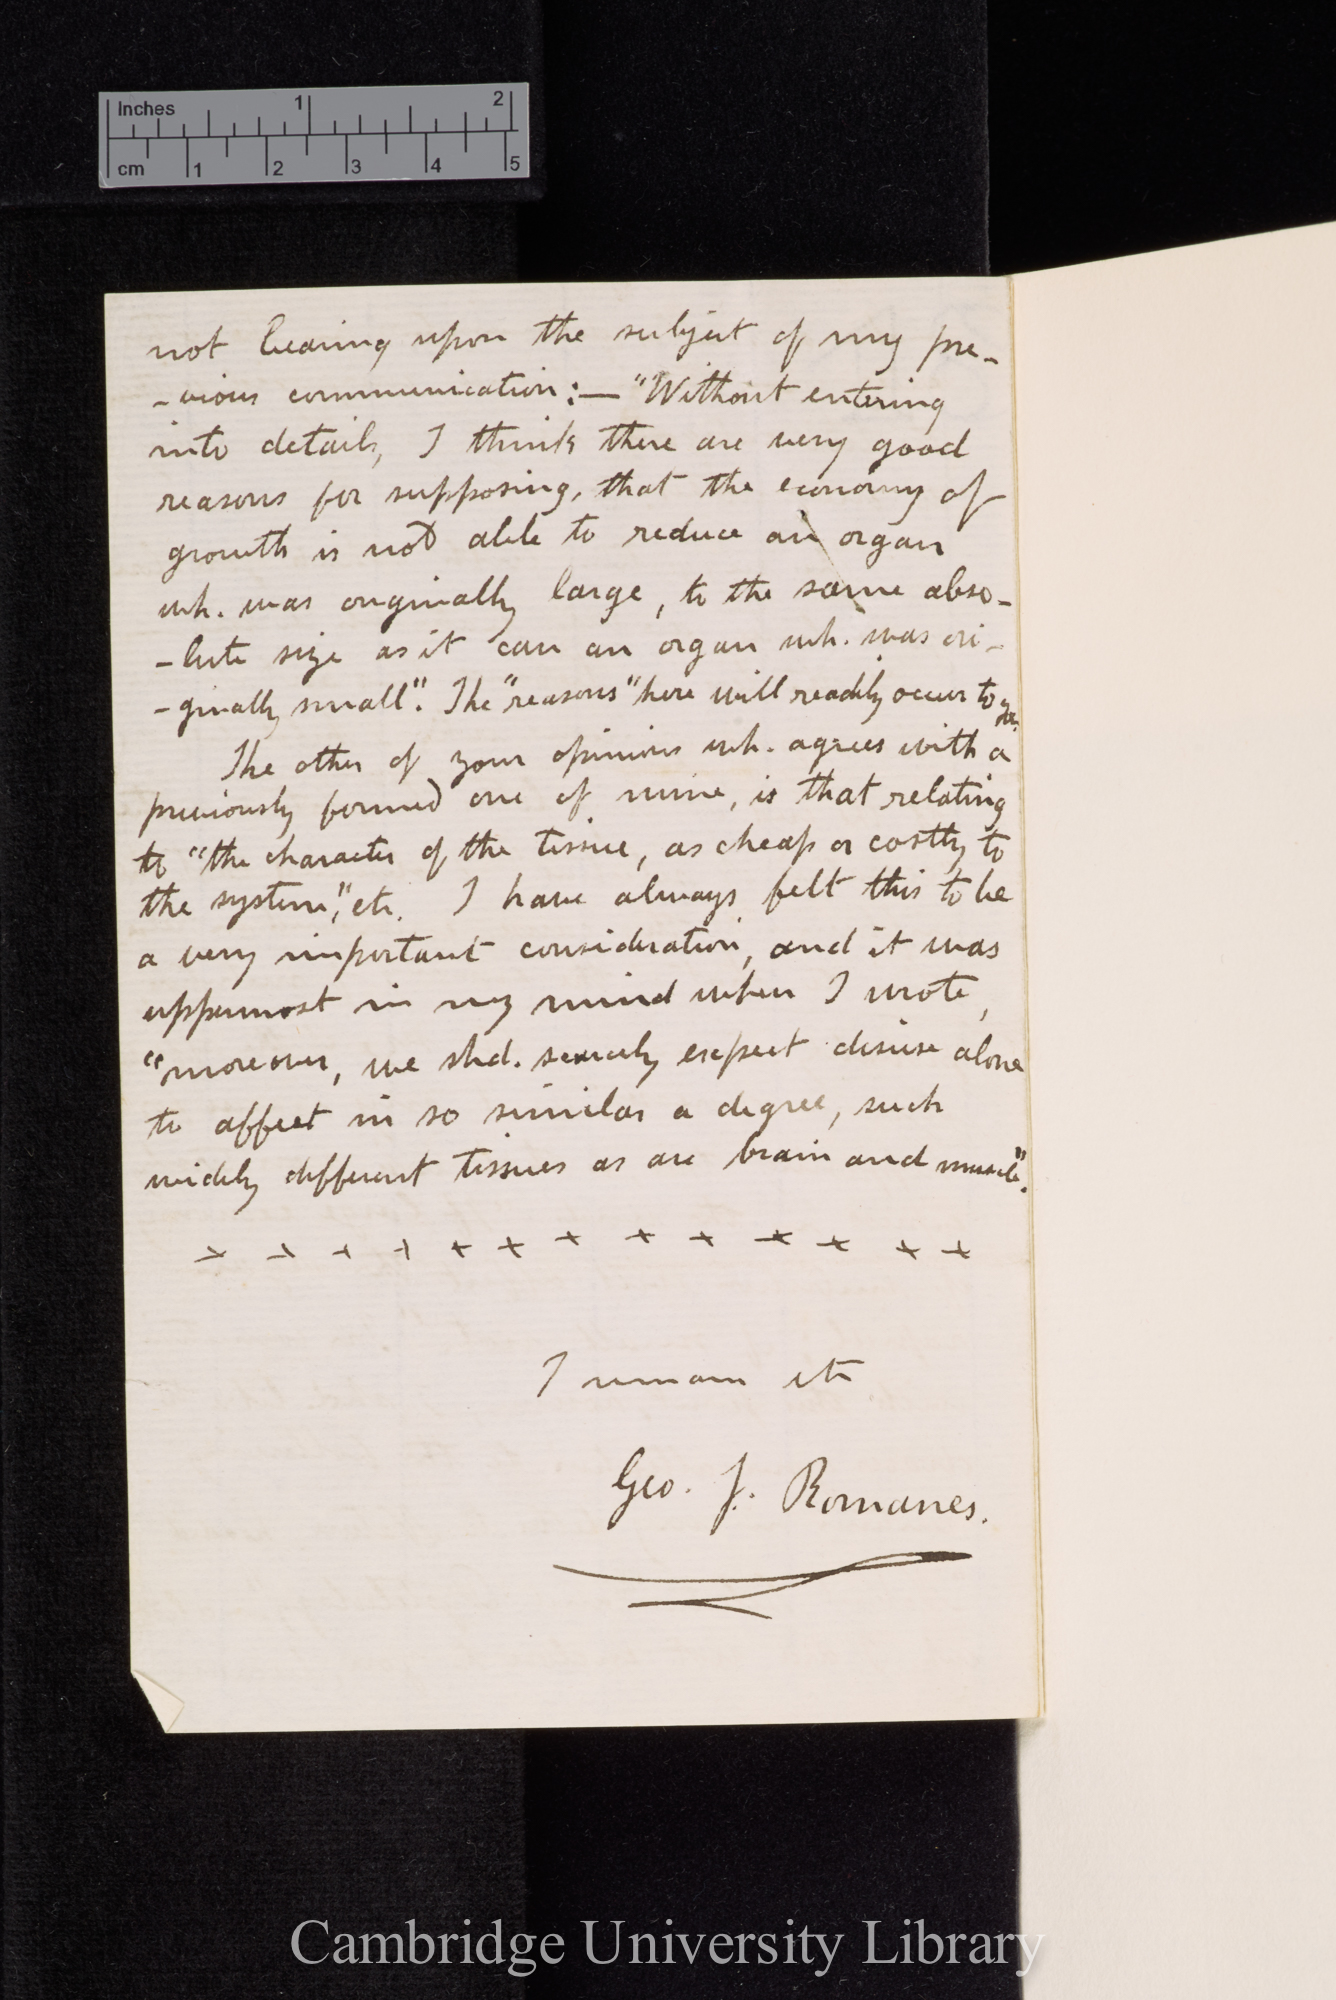 Inches 1 2
cm 1 2 3 4 5
not bearing upon the subject of my pre-
-vious communication:— "Without entering
into details, I think there are very good
reasons for supposing, that the economy of
growth is not able to reduce an organ
wh. was originally large, to the same abso-
-lute size as it can an organ wh. was ori-
-ginally small". The "reasons" here will readily occur to you.
The other of your opinions wh. agrees with a
previously formed one of mine, is that relating
to "the character of the tissue, as cheap or costly to
the system", etc. I have always felt this to be
a very important consideration, and it was
uppermost in my mind when I wrote,
"moreover, we shd. scarcely expect disuse alone
to affect in so similar a degree, such
widely different tissues as are brain and muscle".
x x x x x x x x x x x x x
I remain etc
Geo. J. Romanes.
Cambridge University Library